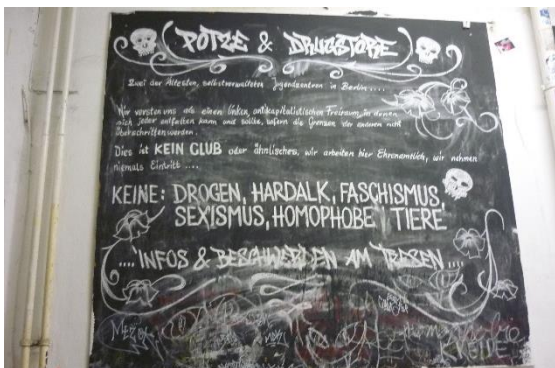 POTZE & DRUGSTORE
Zwei der Ältesten, selbstverwalteten Jugendzentren in Berlin ....
Wir verstehn uns als einen linken, antikapitalistischen Freiraum, in denen
sich jeder entfalten kann und sollte, sofern die Grenzen der anderen nicht
überschritten werden.
Dies ist KEIN CLUB oder ähnliches, wir arbeiten hier Ehrenamtlich, wir nehmen
niemals Eintritt ....
KEINE: DROGEN, HARDALK, FASCHISMUS,
SEXISMUS, HOMOPHOBE TIERE
.... INFOS & BESCHWERDEN AM TRESEN ....